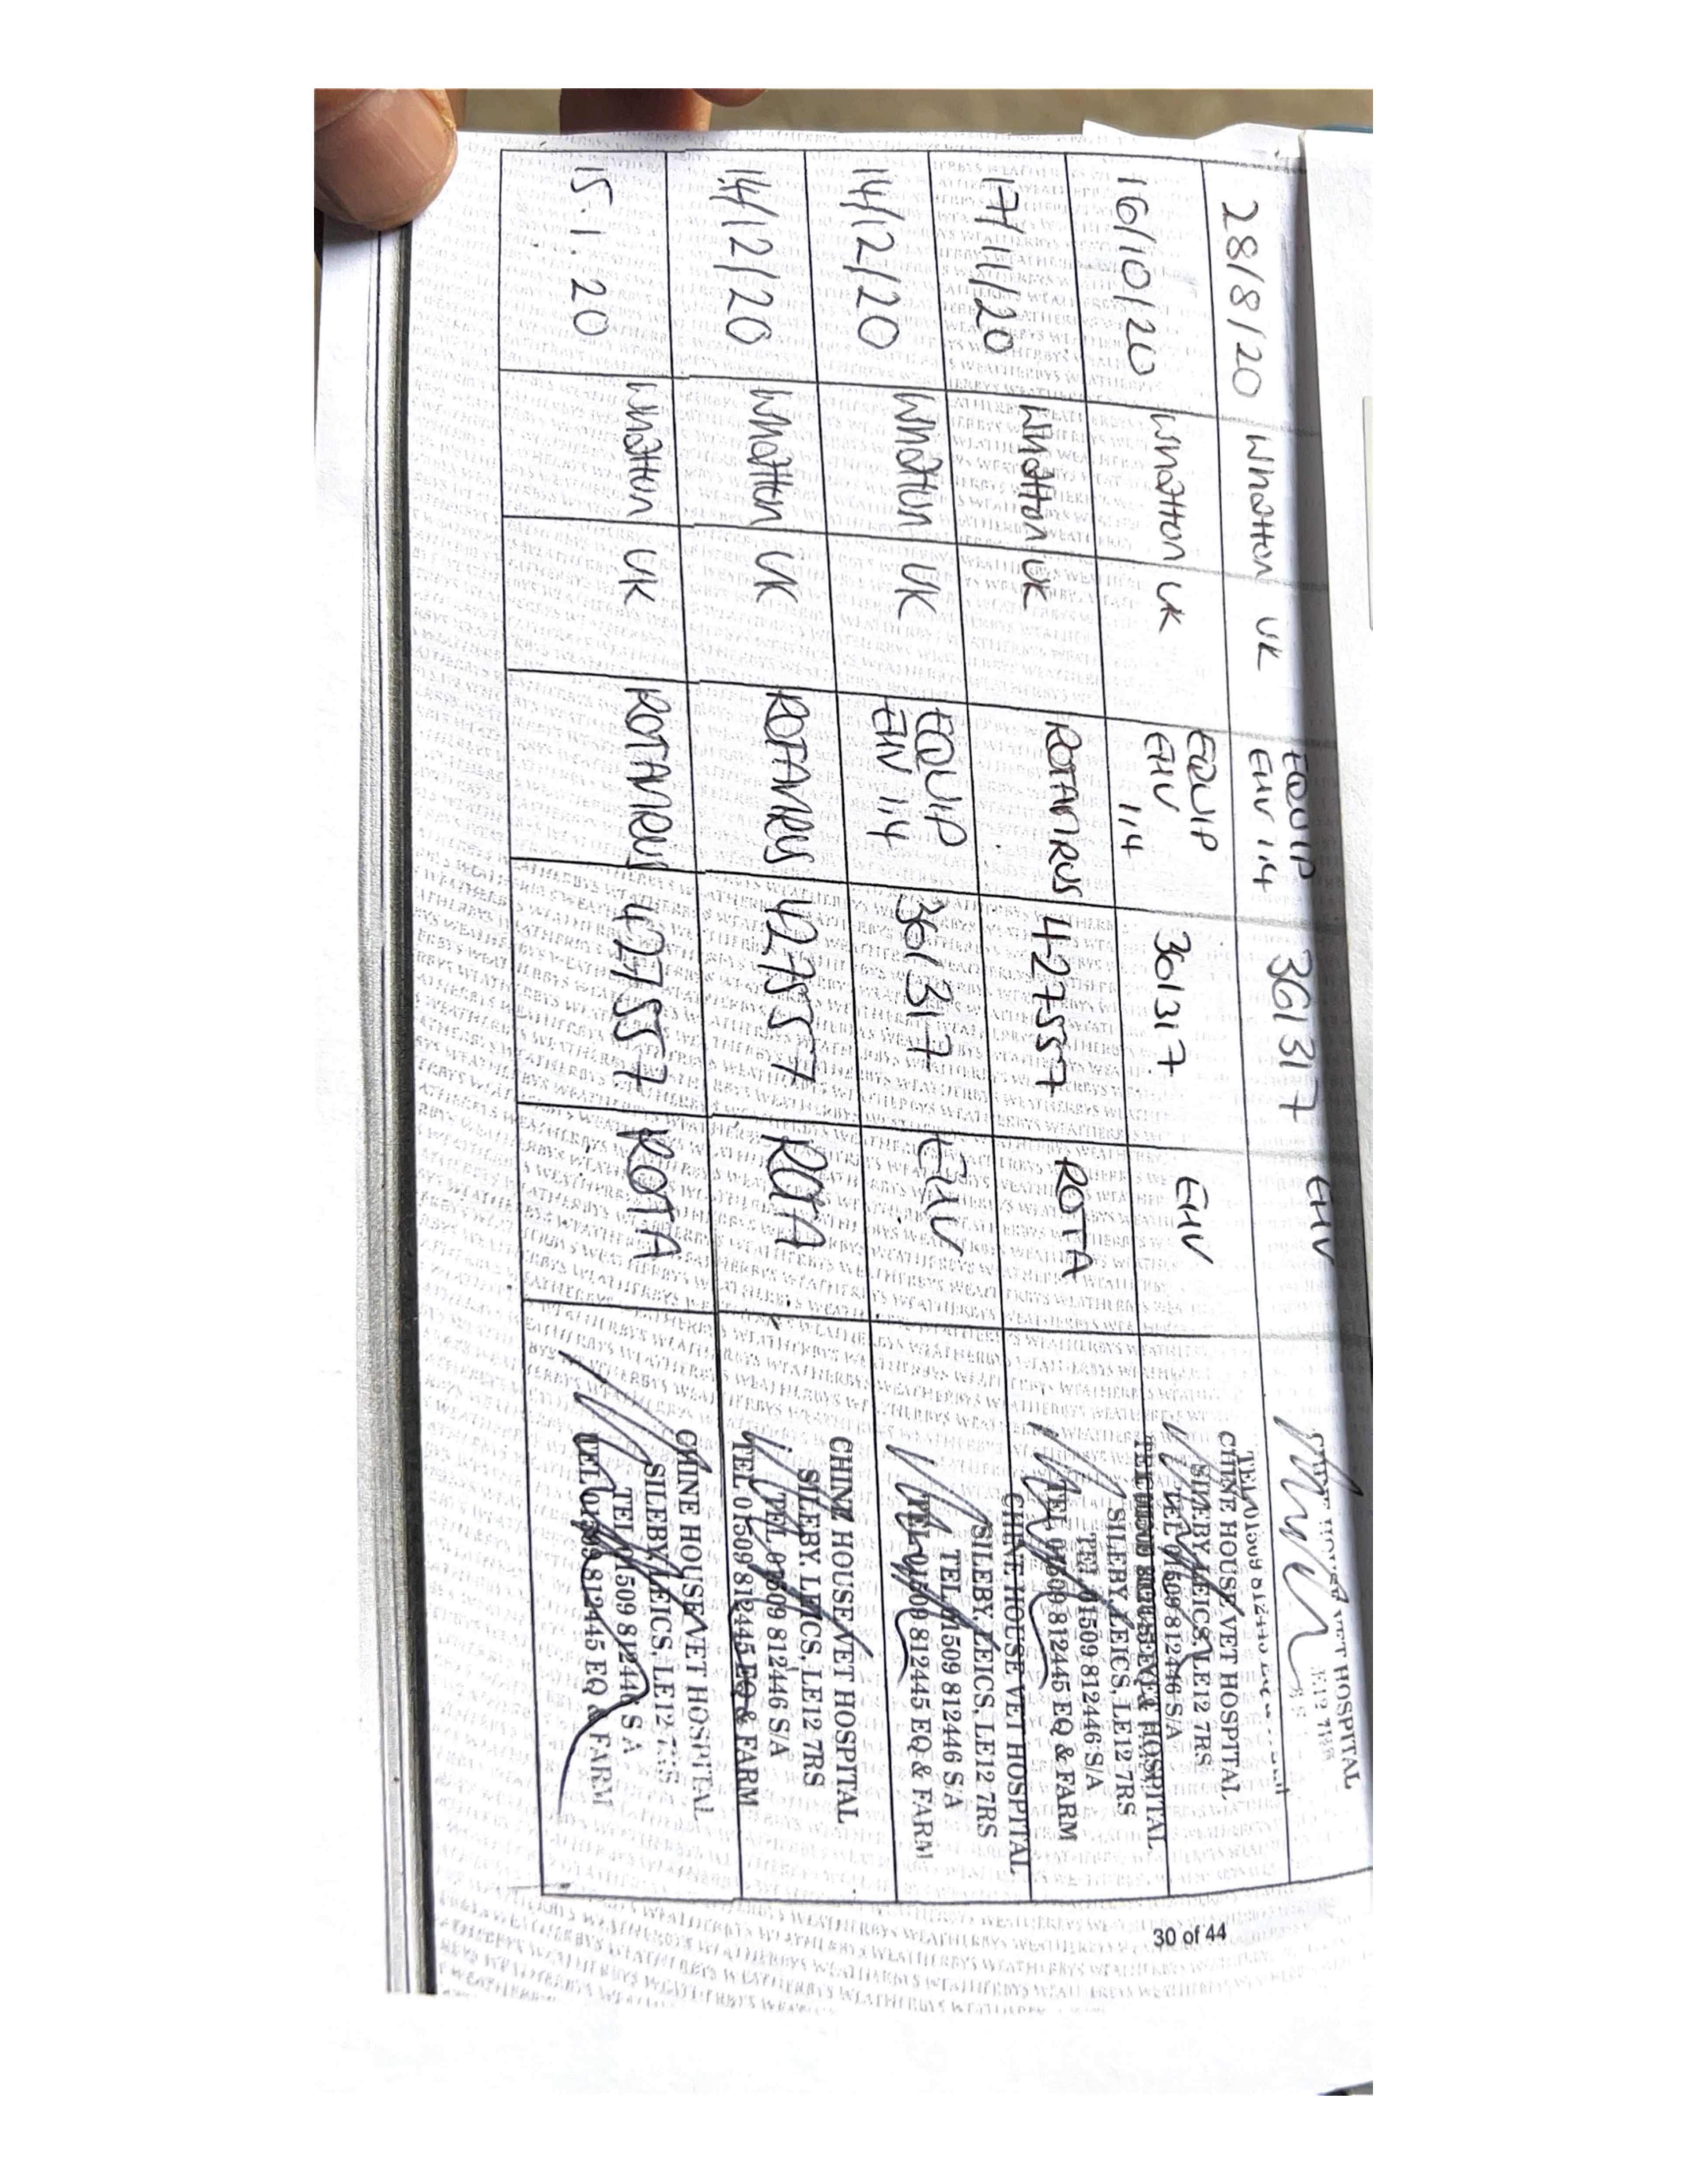 28/8/20 Whatton UK EQUIP EHV 1.4 361317 EHV
VET HOSPITAL
16/10/20 Whatton UK EQUIP EHV 1,4 361317 EHV
CHINE HOUSE VET HOSPITAL
SILEBY, LEICS, LE12 7RS
TEL 01509 812446 S/A
17/11/20 Whatton UK ROTAVIRUS 427557 ROTA
SILEBY, LEICS, LE12 7RS
TEL 01509 812446 S/A
TEL 01509 812445 EQ & FARM
14/12/20 Whatton UK EQUIP EHV 1,4 361317 EHV
CHINE HOUSE VET HOSPITAL
SILEBY, LEICS, LE12 7RS
TEL 01509 812446 S/A
TEL 01509 812445 EQ & FARM
14/12/20 Whatton UK ROTAVIRUS 427557 ROTA
CHINE HOUSE VET HOSPITAL
SILEBY, LEICS, LE12 7RS
TEL 01509 812446 S/A
TEL 01509 812445 EQ & FARM
15.1.20 Whatton UK ROTAVIRUS 427557 ROTA
CHINE HOUSE VET HOSPITAL
SILEBY, LEICS, LE12 7RS
TEL 01509 812446 S/A
TEL 01509 812445 EQ & FARM
30 of 44